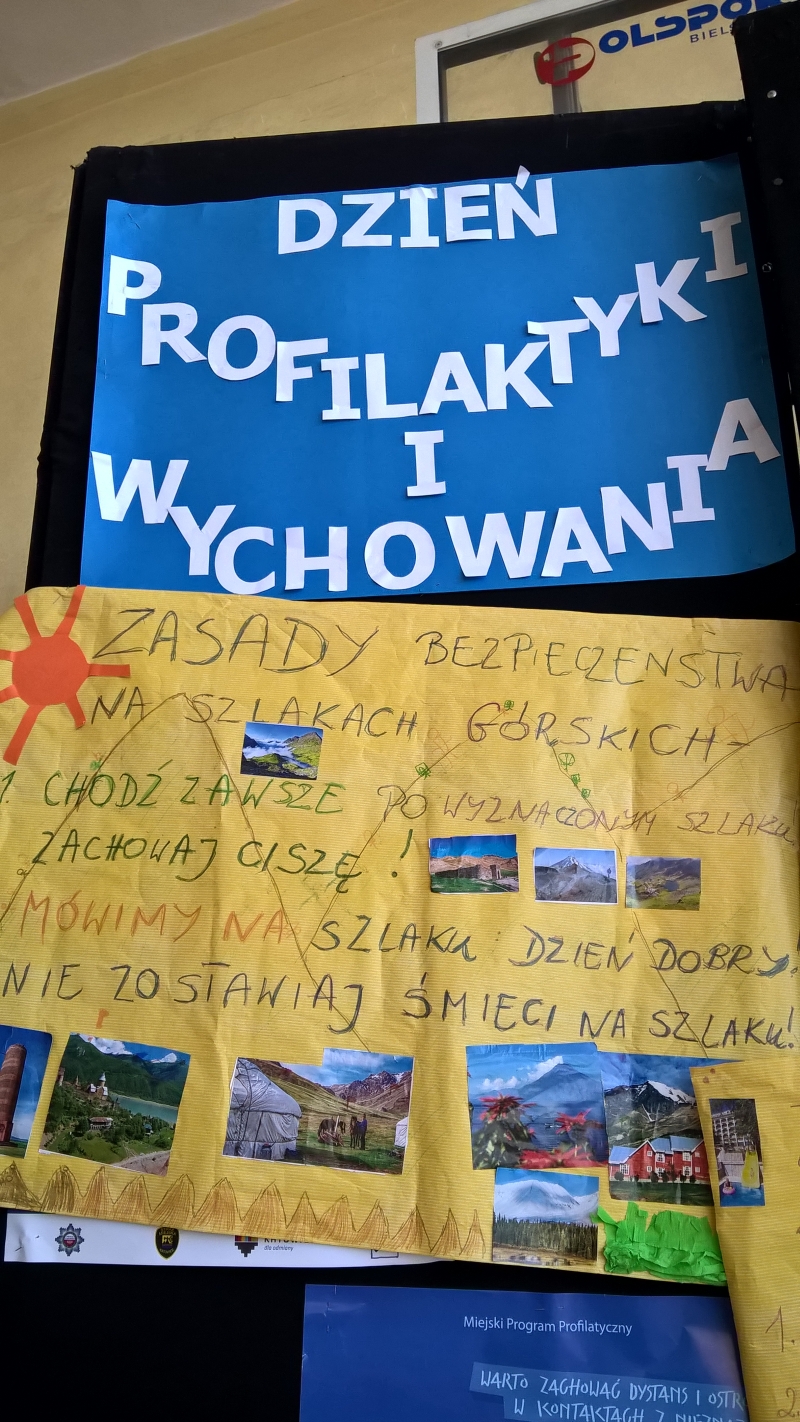 OLSPO
BIEL
DZIEŃ
PROFILAKTYKI
I
WYCHOWANIA
ZASADY BEZPIECZEŃSTWA
NA SZLAKACH GÓRSKICH-
1. CHODŹ ZAWSZE PO WYZNACZONYM SZLAKU!
ZACHOWAJ CISZĘ !
MÓWIMY NA SZLAKU : DZIEŃ DOBRY!
NIE ZOSTAWIAJ ŚMIECI NA SZLAKU!
dla odmiany
1.
2.
Miejski Program Profilatyczny
WARTO ZACHOWAĆ DYSTANS I OSTR
W KONTAKTACH Z